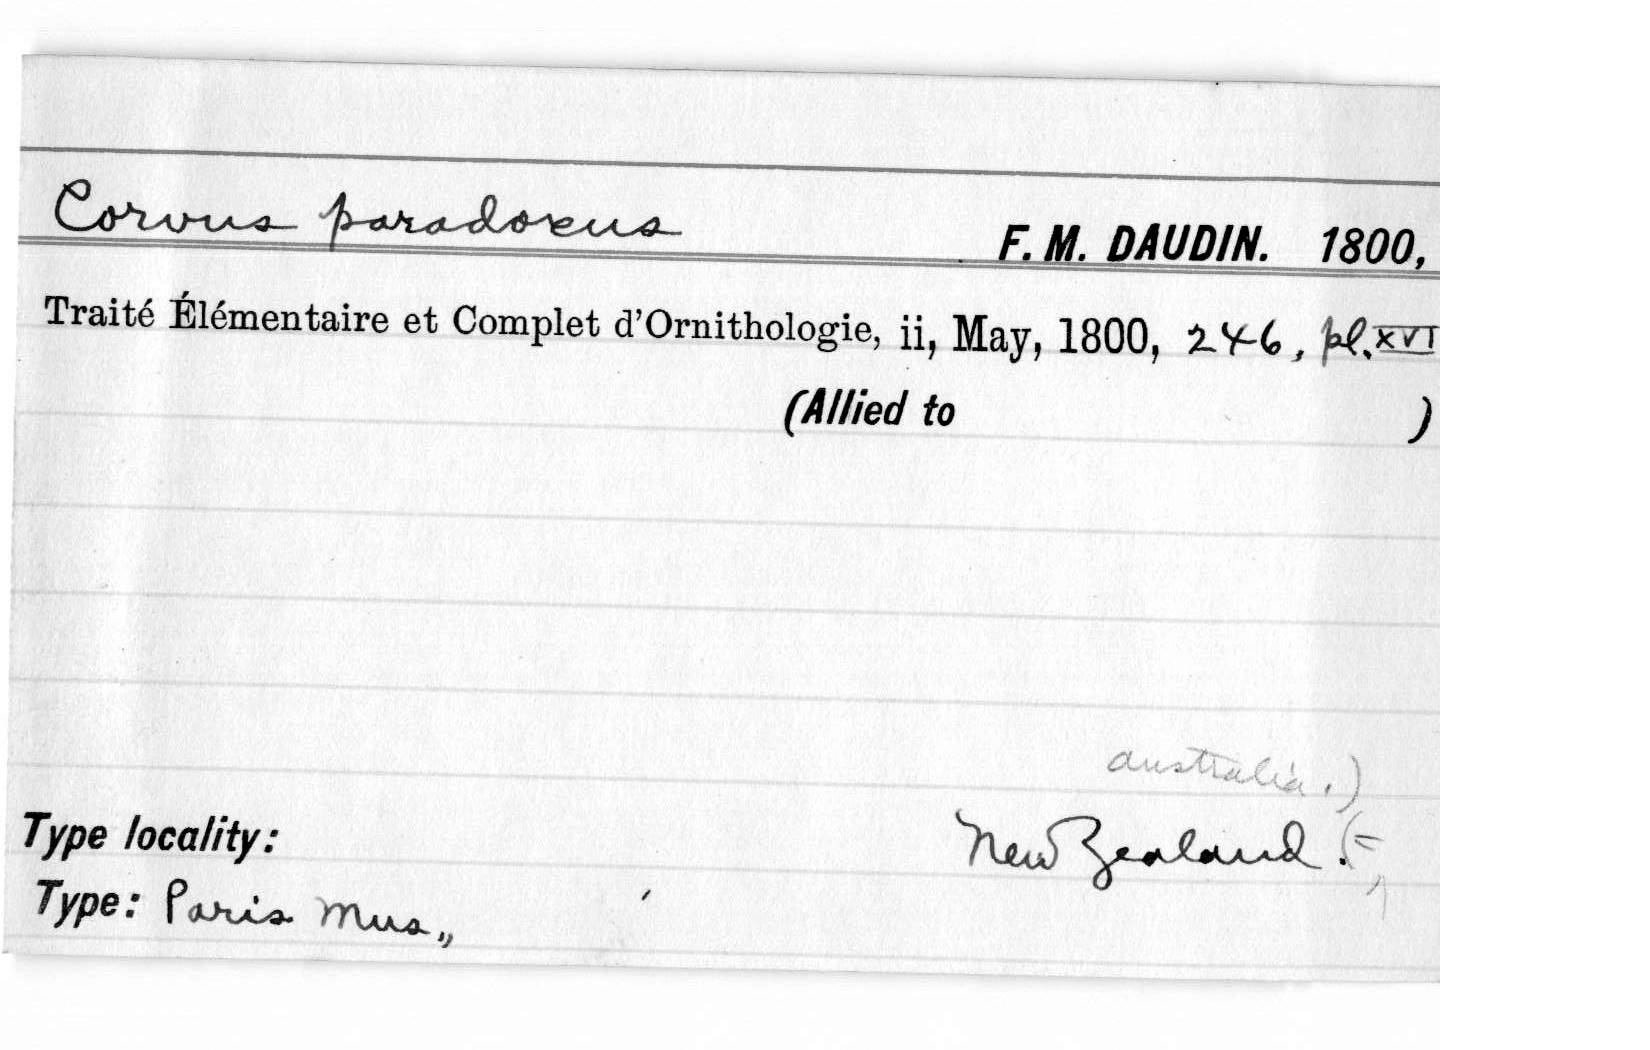 Corvus paradoxus F. M. DAUDIN. 1800,
Traité Élémentaire et Complet d'Ornithologie, ii, May, 1800, 246, pl. XVI
(Allied to )
australia.)
Type locality: New Zealand. (=
Type: Paris Mus.,